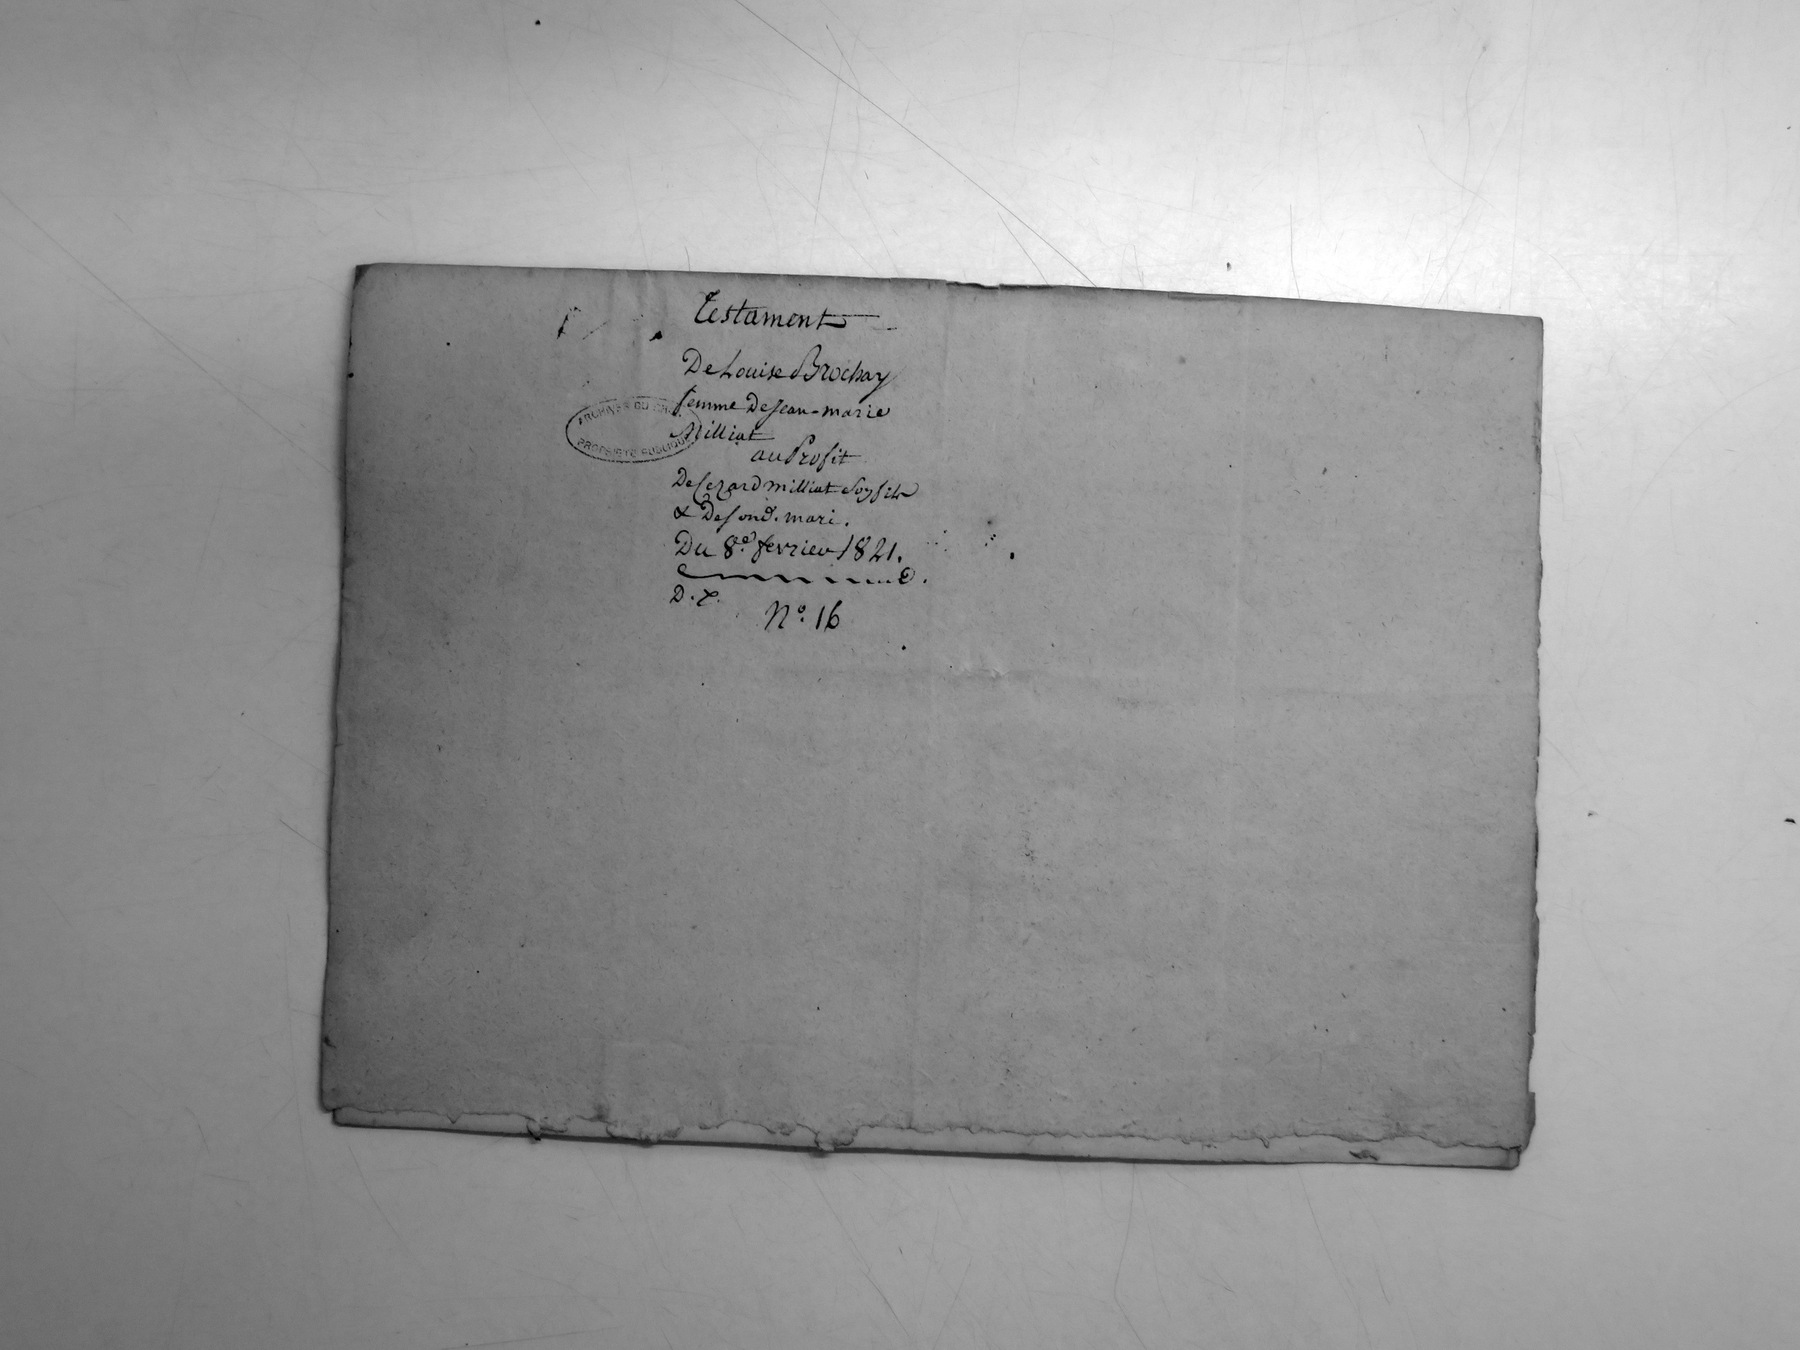 Testament
De Louise Brochay
femme De Jean-marie
Milliat
au Profit
De Cezard milliat Soy fils
& De son d. mari.
Du 8e. fevrier 1821.
D. y.
No. 16
ARCHIVES DU
PROPRIETE PUBLIQUE